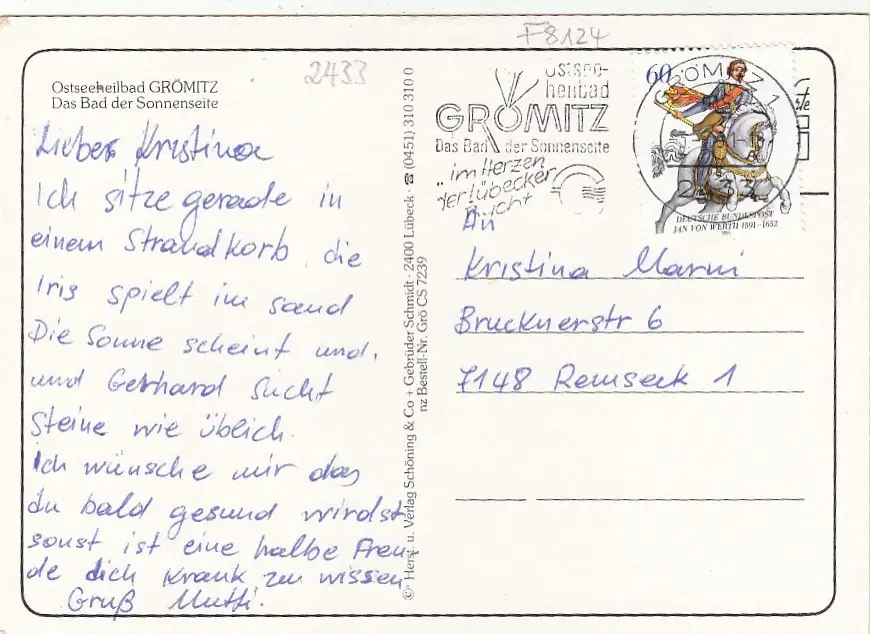 F8124
2433
Ostseeheilbad GRÖMITZ
Das Bad der Sonnenseite
Liebes Kristina
Ich sitze gerade in
einem Strandkorb, die
Iris spielt im sand
Die Sonne scheint und,
und Gerhard sucht
Steine wie üblich.
Ich wünsche mir das
du bald gesund wirdst
sonst ist eine halbe Freu
de dich krank zu wissen
Gruß Mutti.
© Herst. u. Verlag Schöning & Co + Gebrüder Schmidt · 2400 Lübeck · ☎ (0451) 310 310 0
nz Bestell-Nr. Grö CS 7239
Ostsee-
heilbad
GRÖMITZ
Das Bad der Sonnenseite
„im Herzen
der Lübecker
Bucht
60
GRÖMITZ 1
2433
DEUTSCHE BUNDESPOST
JAN VON WERTH 1591–1652
An
Kristina Marni
Brucknerstr 6
7148 Remseck 1